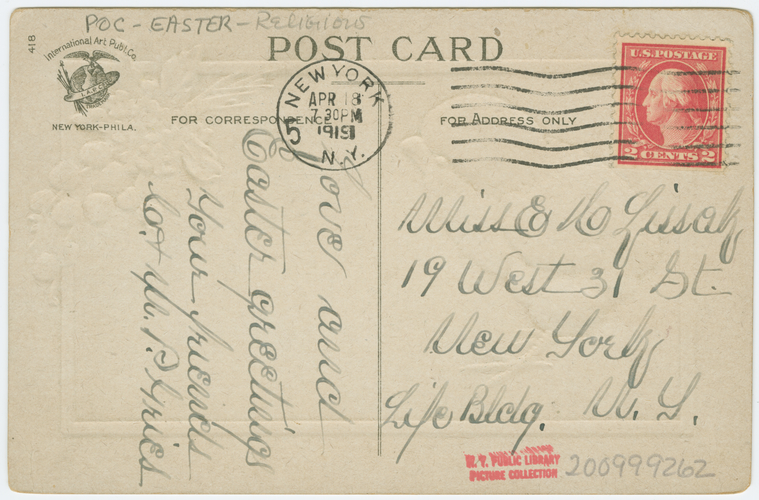 POC - EASTER - RELIGIOUS
418
International Art Publ. Co.
NEW YORK-PHILA.
POST CARD
FOR CORRESPONDENCE
FOR ADDRESS ONLY
NEW YORK
APR 18
7 30PM
1919
N.Y.
5
U.S. POSTAGE
2 CENTS 2
Love and
Easter greetings
Your friends
Miss E
19 West 31 St.
New York
Life Bldg. N. Y.
N. Y. PUBLIC LIBRARY
PICTURE COLLECTION
200999262